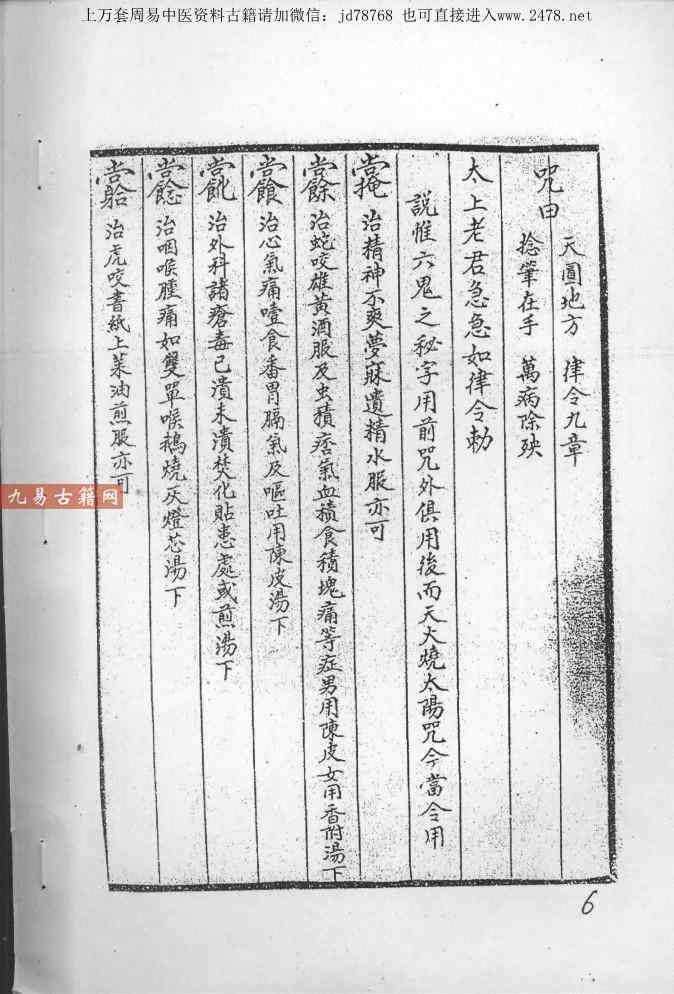 上万套周易中医资料古籍请加微信：jd78768 也可直接进入www.2478.net
咒曰
天圓地方　律令九章
捻筆在手　萬病除殃
太上老君急急如律令勅
説惟六鬼之秘字用前咒外俱用後而天大燒太陽咒今當令用
治精神不爽夢寐遺精水服亦可
治蛇咬雄黃酒服及虫積痞氣血積食積塊痛等症男用陳皮女用香附湯下
治心氣痛噎食番胃膈氣及嘔吐用陳皮湯下
治外科諸瘡毒已潰未潰焚化貼患處或煎湯下
治咽喉腫痛如雙單喉鵝燒灰燈芯湯下
治虎咬書紙上菜油煎服亦可
九易古籍网
6